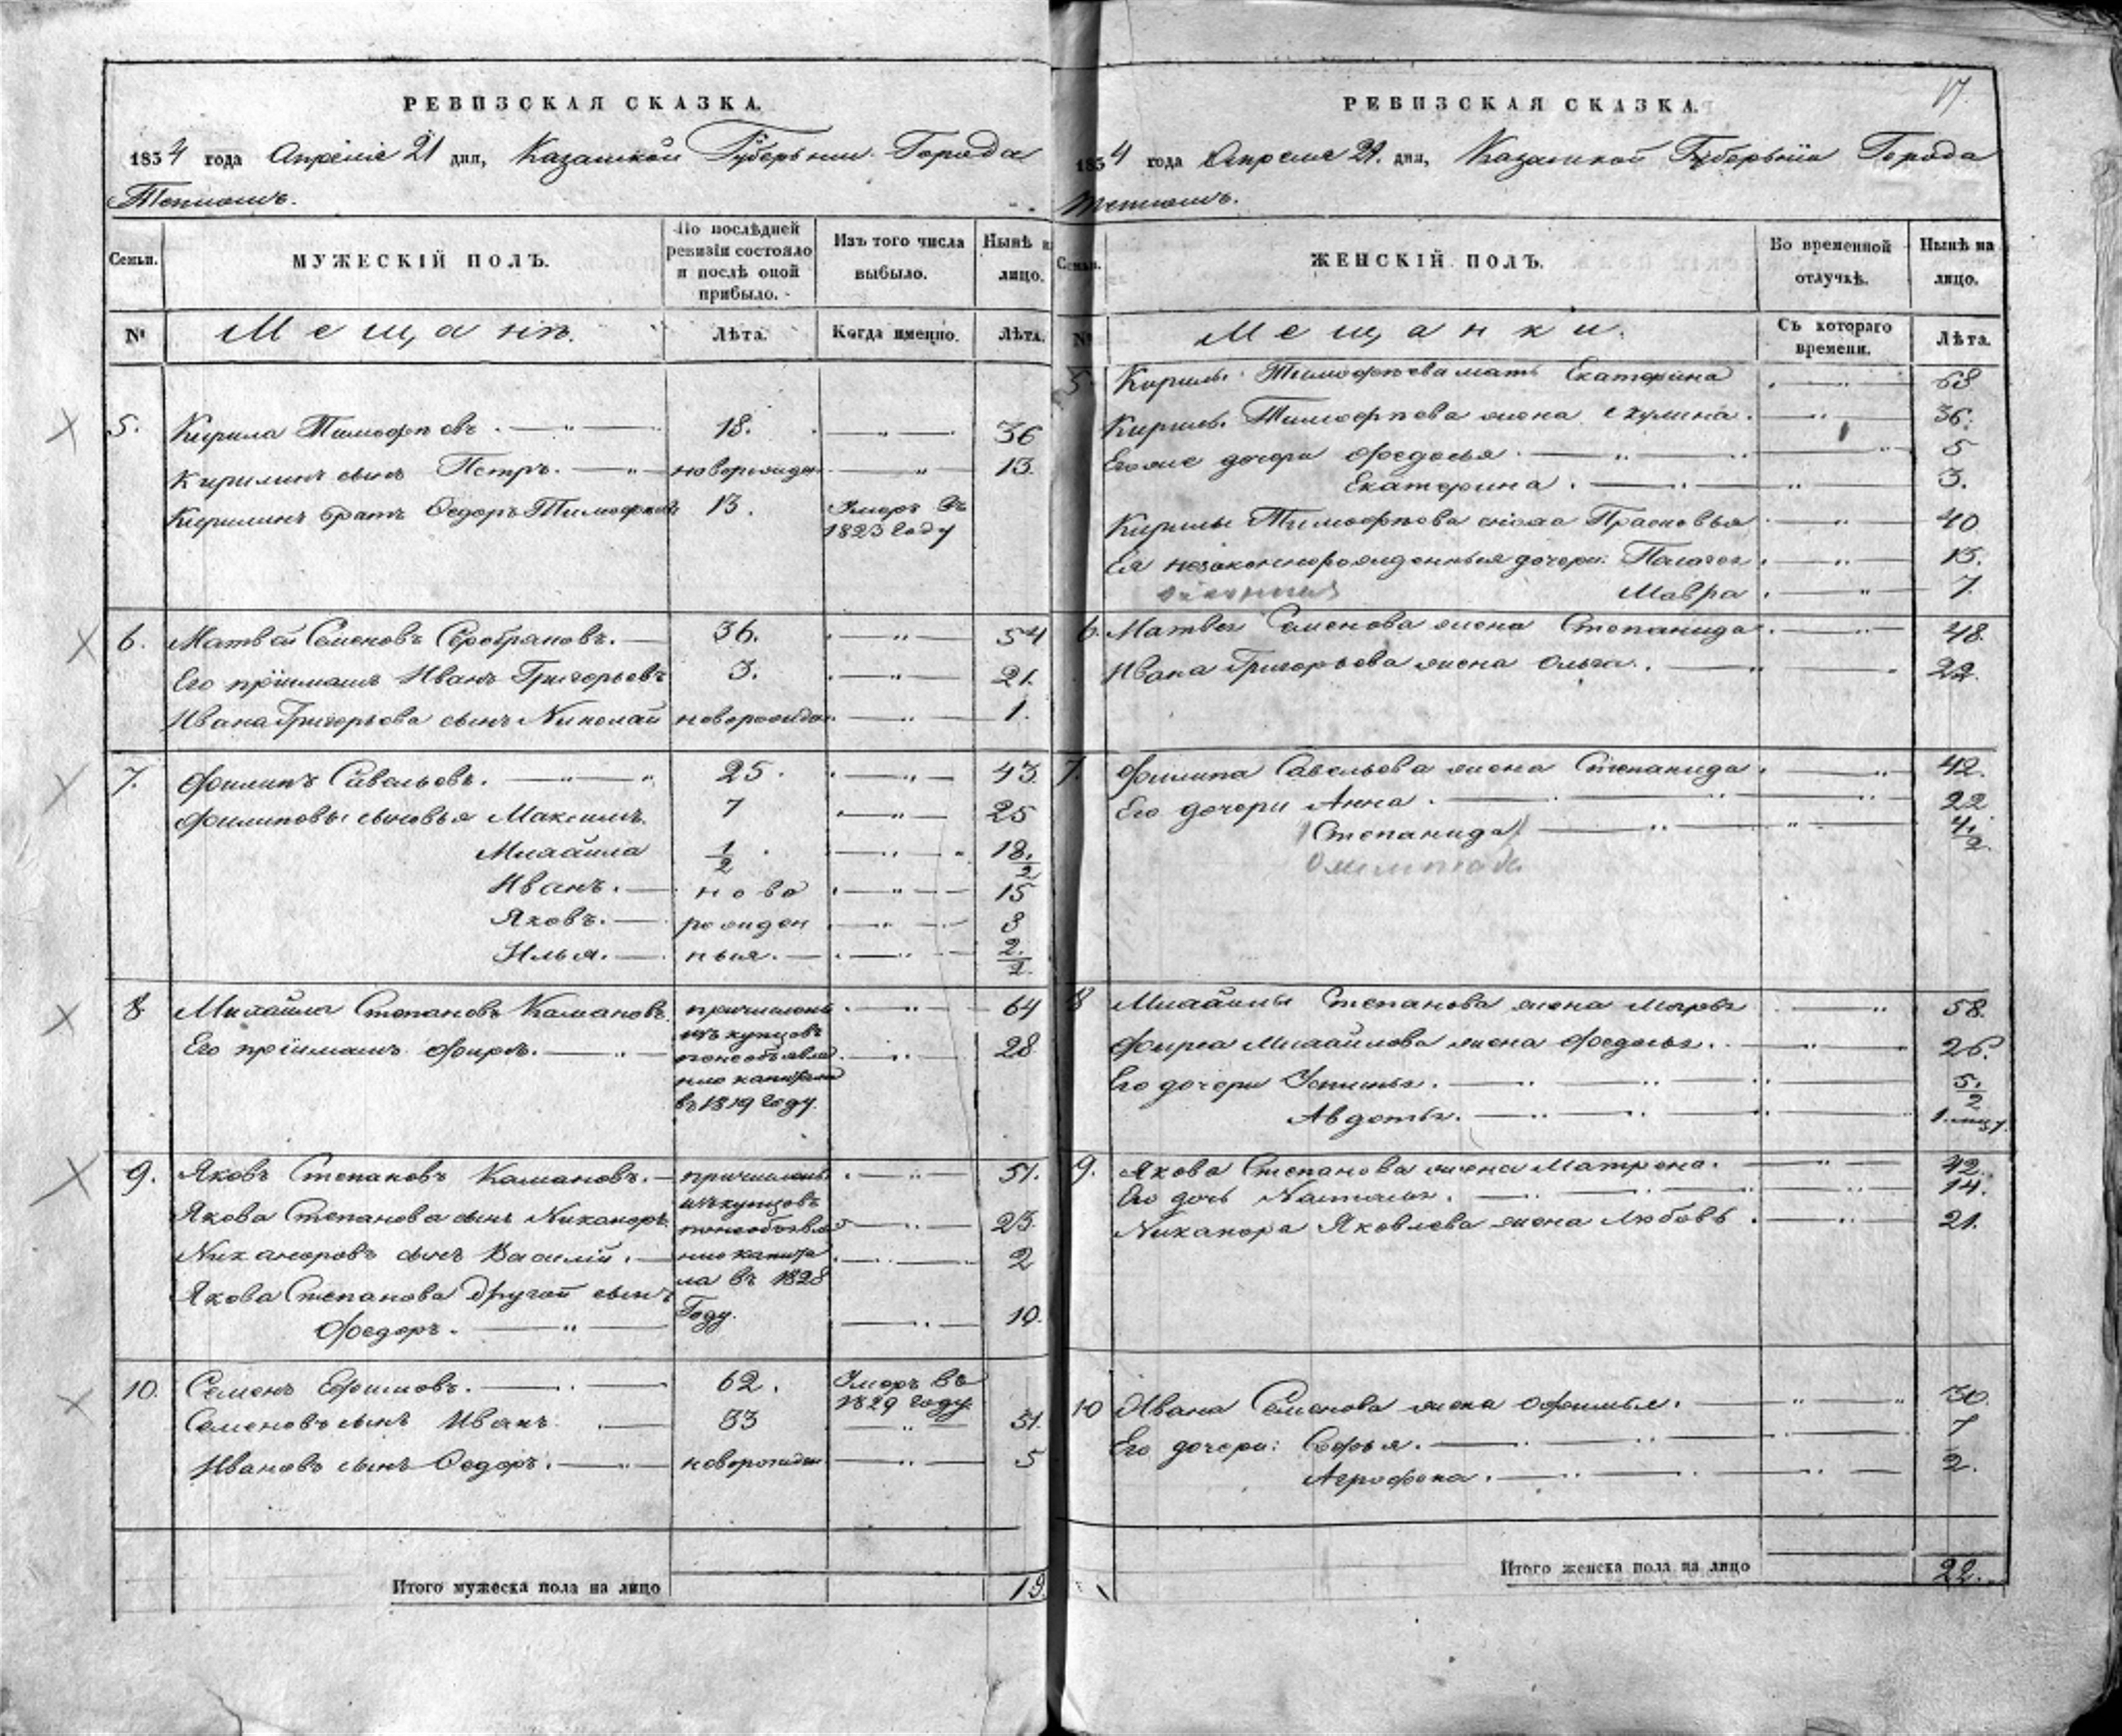 РЕВИЗСКАЯ СКАЗКА.
1834 года Апреля 21 дня, Казанской Губернии Города
Тетюшъ.
Семьи.
МУЖЕСКІЙ ПОЛЪ.
По послѣдней ревизіи состояло и послѣ оной прибыло.
Изъ того числа выбыло.
Нынѣ на лицо.
№
Мещанъ.
Лѣта.
Когда именно.
Лѣта.
5. Кирила Тимофѣевъ. 18. 36
Кирилинъ сынъ Петръ. новорожден 13.
Кирилинъ братъ Ѳедоръ Тимофѣевъ 13. Умеръ въ
1823 году
6. Матвей Семеновъ Серебряновъ. 36. 54
Его пріимашъ Иванъ Григорьевъ 3. 21.
Ивана Григорьева сынъ Николай новорожден. 1.
7. Филипъ Савельевъ. 25. 43
Филиповы сыновья Максимъ. 7 25
Михайла 1/2 18 1/2
Иванъ. ново 15
Яковъ. рожден 8
Илья. ныя. 2 1/2
8 Михайла Степановъ Камановъ. причисленъ 64
изъ купцовъ
Его пріимашъ Фирсъ. понеобъявле 28
нію капитала
въ 1819 году.
9. Яковъ Степановъ Камановъ. причисленъ 51.
изъ купцовъ
Якова Степанова сынъ Никаноръ. понеобъявле 23.
Никаноровъ сынъ Василій. нію капита 2
ла въ 1828
Якова Степанова другой сынъ Году.
Федоръ. 10.
10. Семенъ Ефимовъ. 62. Умеръ въ
1829 году
Семеновъ сынъ Иванъ. 33 51.
Ивановъ сынъ Ѳедоръ. новорожден 5
Итого мужеска пола на лицо 19
17.
РЕВИЗСКАЯ СКАЗКА.
1834 года Апреля 21. дня, Казанской Губерніи Города
Тетюшъ.
Семьи.
ЖЕНСКІЙ ПОЛЪ.
Во временной отлучкѣ.
Нынѣ на лицо.
№
Мещанки.
Съ котораго времени.
Лѣта.
5 Кирилы Тимофѣева мать Екатерина 68
Кирилы Тимофѣева жена Акулина. 36.
Его же дочери Федосья. 5
Екатерина. 3.
Кирилы Тимофѣева сноха Прасковья 40
Ея незаконнорожденныя дочери: Палагея 13.
Мавра. 7.
6. Матвея Семенова жена Степанида. 48.
Ивана Григорьева жена Ольга. 22.
7. Филипа Савельева жена Степанида. 42.
Его дочери Анна. 22
(Степанида) 4 1/2
8 Михайлы Степанова жена Марфа 58.
Фирса Михайлова жена Федосья. 26.
Его дочери Устинья. 5 1/2
Авдотья. 1. мцъ.
9. Якова Степанова жена Матрена. 42.
Его дочь Наталья. 14.
Никанора Яковлева жена Любовь. 21.
10 Ивана Семенова жена Офимья. 30.
Его дочери: Софья. 7
Агрофена. 2.
Итого женска пола на лицо 22.